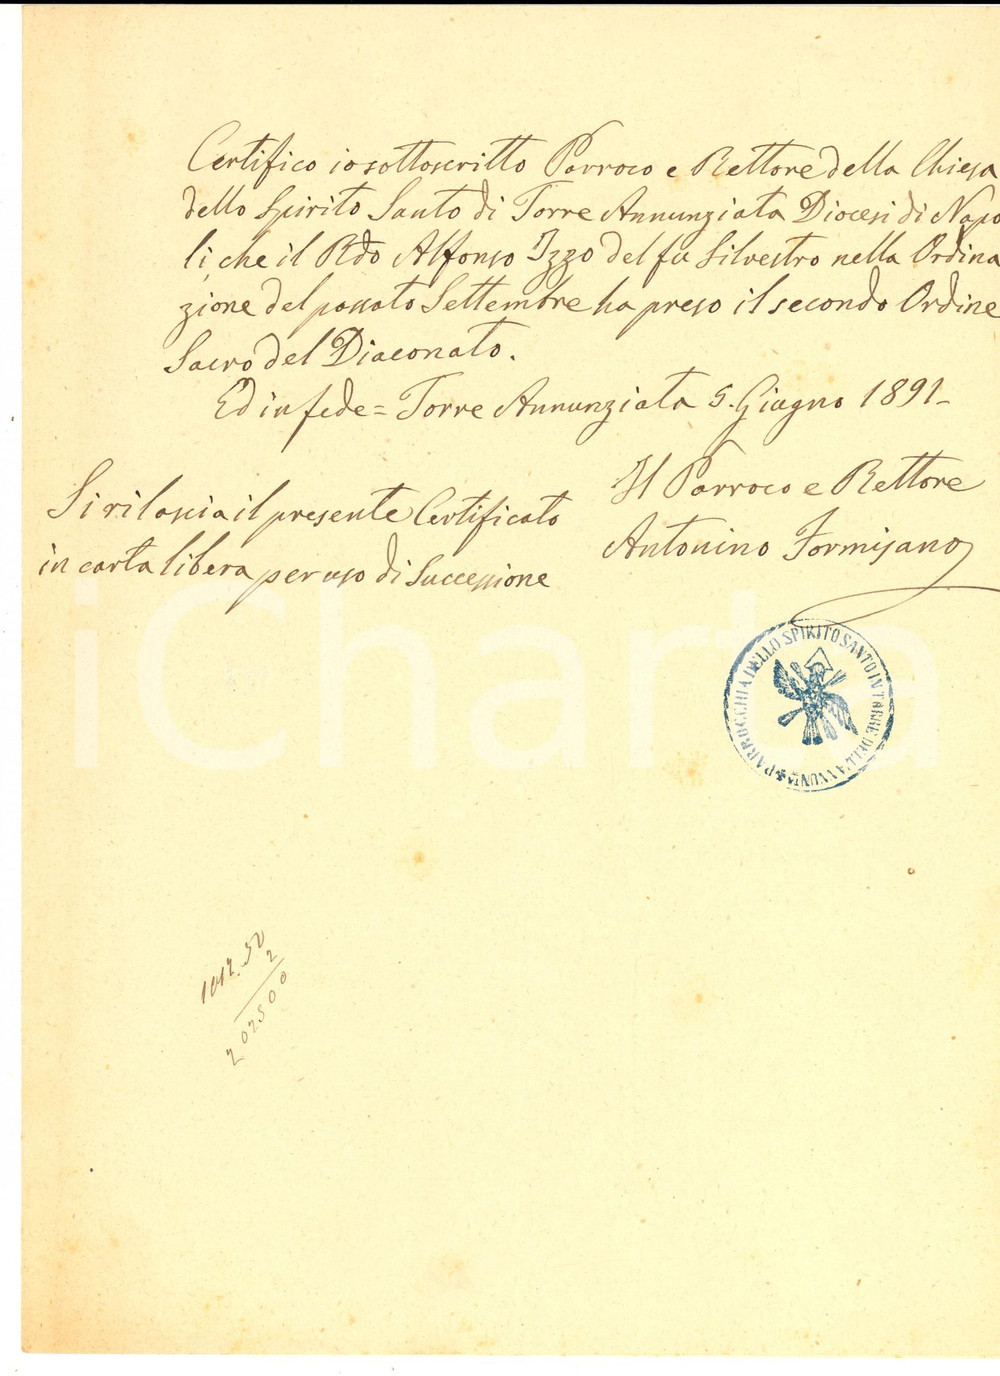 Certifico io sottoscritto Parroco e Rettore della Chiesa
dello Spirito Santo di Torre Annunziata Diocesi di Napo
li, che il Rdo Alfonso Izzo del fu Silvestro nella Ordina
zione del passato Settembre ha preso il secondo Ordine
Sacro del Diaconato.
Ed in fede = Torre Annunziata 5. Giugno 1891-
Il Parroco e Rettore
Antonino Formisano
Si rilascia il presente Certificato
in carta libera per uso di Successione
PARROCCHIA DELLO SPIRITO SANTO IN TORRE DELL'ANNUNTA
iCharta
1012.50
2
202500